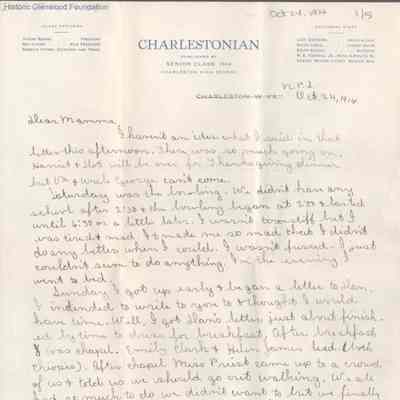 Historic Glenwood Foundation
Oct 24, 1914
1/5
CHARLESTONIAN
PUBLISHED BY
SENIOR CLASS, 1914
CHARLESTON HIGH SCHOOL
CHARLESTON, W. VA.
Oct. 24, 1914
Dear Mamma,
I haven't an idea what I said in that
letter this afternoon. There was so much going on.
Harriet & will be over for Thanksgiving dinner
but & Uncle George can't come.
Saturday was the bowling. We didn't have any
school after 2:30 & the bowling began at 2:30 & lasted
until 6:30 or a little later. I wasn't too stiff but I
was tired & mad. It made me so mad that I didn't
do any better when I could. I wasn't fussed. I just
couldn't seem to do anything. In the evening I
went to bed.
Sunday I got up early & began a letter to
I intended to write to you to & thought I would
have time. Well, I got letter just about finish-
ed by time to dress for breakfast. After breakfast
& was chapel. Emily Clark & Helen James lead (both
). After chapel Miss Priest came up to a crowd
of us & told us we should go out walking. We all
had so much to do we didn't want to but we finally